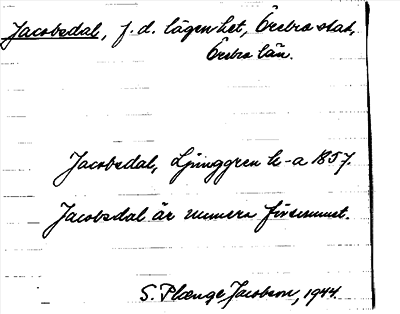 Jacobsdal, f.d. lägenhet, Örebro stad,
Örebro län.
Jacobsdal, Ljunggren k-a 1857.
Jacobsdal är numera försvunnet.
S. Plænge Jacobson, 1944.